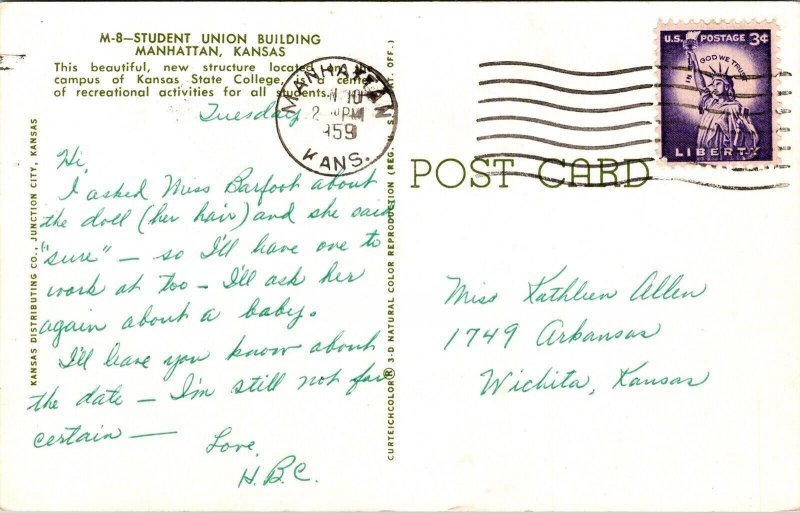 M-8—STUDENT UNION BUILDING
MANHATTAN, KANSAS
This beautiful, new structure located on the
campus of Kansas State College, is a center
of recreational activities for all students.
MANHATTAN
10
2 PM
1959
KANS.
U.S. POSTAGE 3¢
IN GOD WE TRUST
LIBERTY
POST CARD
Tuesday
Hi,
I asked Miss Barfoot about
the doll (her hair) and she said
"sure" — so I'll have one to
work at too — I'll ask her
again about a baby.
I'll leave you know about
the date — I'm still not for
certain —
Love,
H.B.C.
Miss Kathleen Allen
1749 Arkansas
Wichita, Kansas
KANSAS DISTRIBUTING CO., JUNCTION CITY, KANSAS
CURTEICHCOLOR® 3-D NATURAL COLOR REPRODUCTION (REG. U. S. PAT. OFF.)